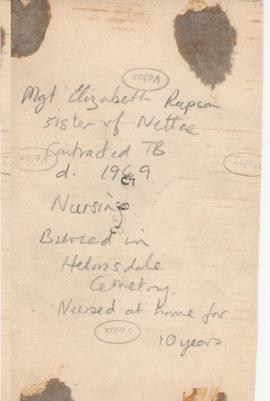 Velox
Mgt Elizabeth Rapson
sister of Nettae
Contracted TB
d. 1969
Velox
Nursing
Buried in
Helmsdale
Cemetery
Nursed at home for
Velox
10 years